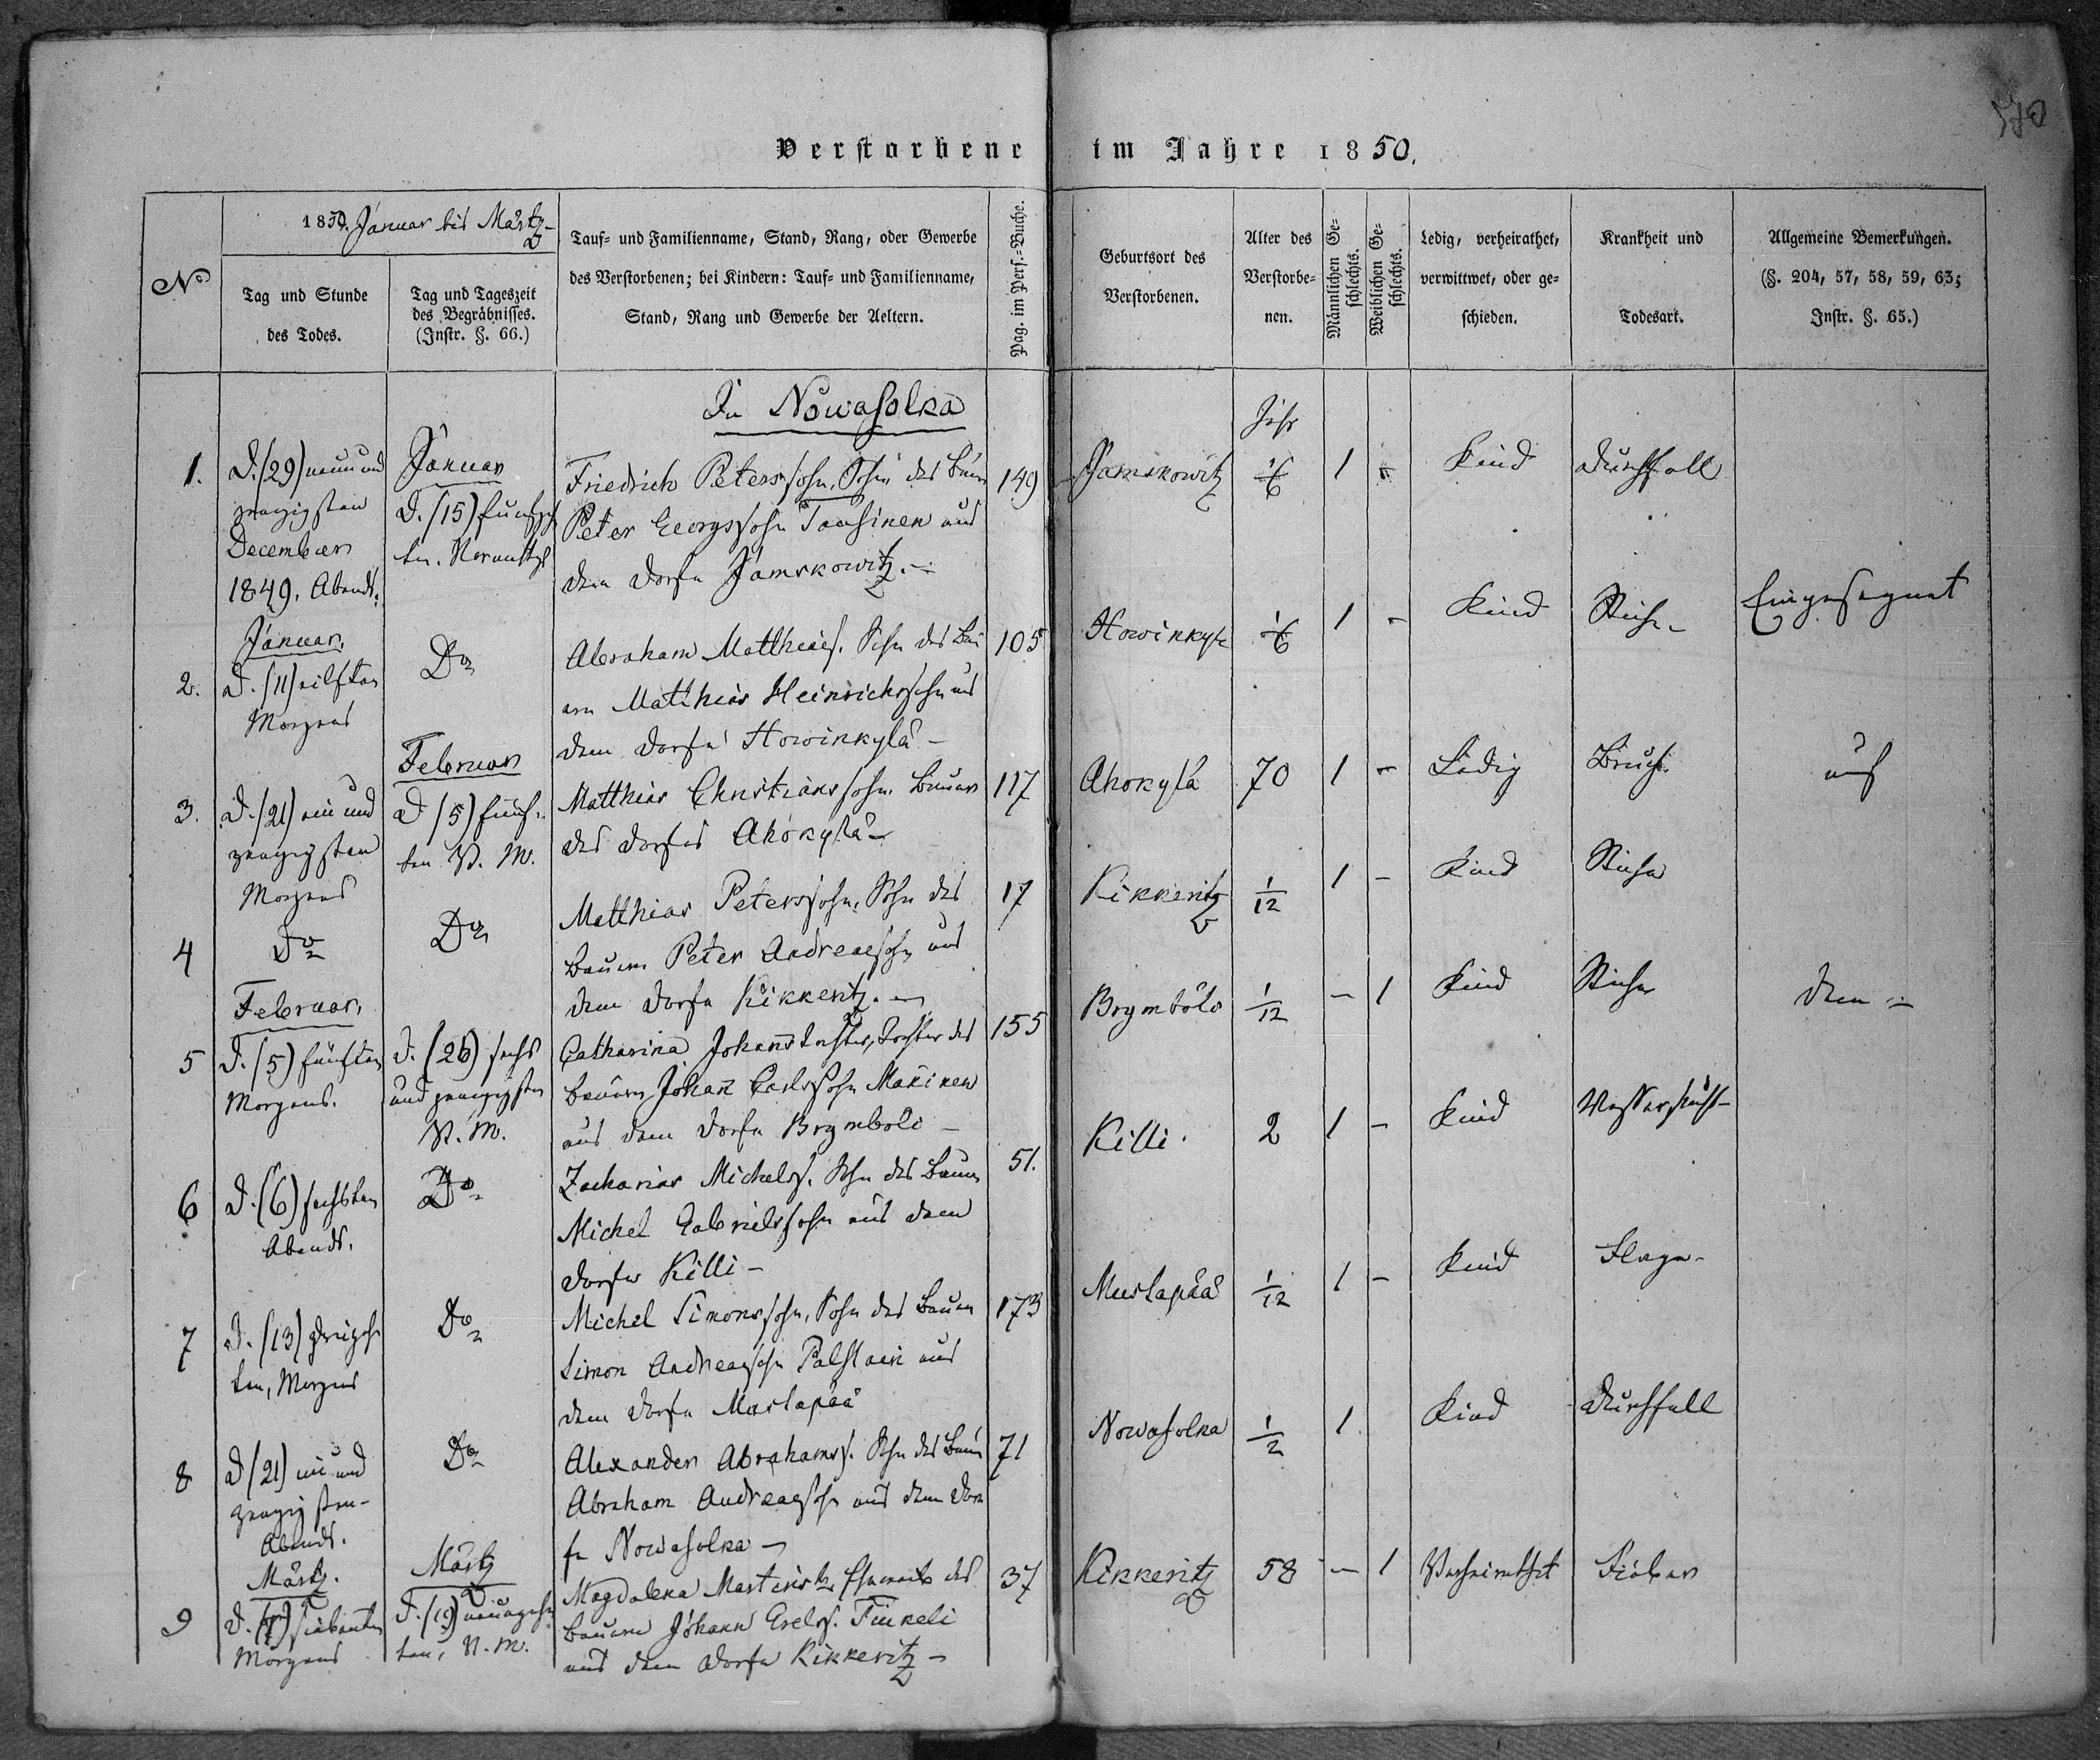 570
Verstorbene im Jahre 1850.
No
1850. Januar bis Märtz
Tag und Stunde
des Todes.
Tag und Tageszeit
des Begräbnisses.
(Instr. §. 66.)
Tauf- und Familienname, Stand, Rang, oder Gewerbe
des Verstorbenen; bei Kindern: Tauf- und Familienname,
Stand, Rang und Gewerbe der Aeltern.
Pag. im Pers.-Buche.
Geburtsort des
Verstorbenen.
Alter des
Verstorbe-
nen.
Männlichen Ge-
schlechts.
Weiblichen Ge-
schlechts.
Ledig, verheirathet,
verwittwet, oder ge-
schieden.
Krankheit und
Todesart.
Allgemeine Bemerkungen.
(§. 204, 57, 58, 59, 63;
Instr. §. 65.)
In Nowasolka
1.
D. (29) neun und
zwanzigsten
December
1849. Abends.
Januar
D. (15) funfzehn
ten.
Friedrich Peterssohn, Sohn des Bauern
Peter Georgssohn aus
dem Dorfe Jamskowitz.
149
Jamskowitz
Jahr
1/6
1
-
Kind
Durchfall
2.
Januar.
D. (11) eilften
Morgens
Do
Abraham Matthiass. Sohn des Bau
ern Matthias Heinrichssohn aus
dem Dorfe Howinkylä -
105
Howinkylä
1/6
1
-
Kind
Eingesegnet
3.
D. (21) ein und
zwanzigsten
Morgens
Februar
D (5) fünf-
ten N. M.
Matthias Christianssohn. Bauer
des Dorfes Ahokylä -
117
Ahokylä
70
1
-
Ledig
Bruch
auf
4
Do
Do
Matthias Peterssohn, Sohn des
Bauern Peter Andreassohn aus
dem Dorfe Kikkeritz. -
17
Kikkeritz
1/12
1
-
Kind
5
Februar.
D. (5) fünften
Morgens.
D. (26) sechs
und zwanzigsten
N. M.
Catharina Johannstochter, Tochter des
Bauern Johann Carlssohn Makinen
aus dem Dorfe Brymböli -
155
Brymböli
1/12
-
1
Kind
dem
6
D. (6) sechsten
Abends.
Do
Zacharias Michels. Sohn des Bauern
Michel Gabrielssohn aus dem
Dorfe Killi -
51.
Killi.
2
1
-
Kind
Wassersucht -
7
D. (13) dreizehn
ten, Morgens
Do
Michel Simonssohn, Sohn des Bauern
Simon Andreassohn aus
dem Dorfe Mustapää
173
Mustapää
1/12
1
-
Kind
8
D (21) ein und
zwanzigsten -
Abends.
Do
Alexander Abrahams. Sohn des Bauern
Abraham Andreassohn aus dem Dor
fe Nowasolka -
71
Nowasolka
1/2
1
Kind
Durchfall
9
Märtz.
D. (7) siebenten
Morgens
Märtz
D. (19) neunzehn
ten, N. M.
Magdalena Martinst. Eheweib des
Bauern Johann
aus dem Dorfe Kikkeritz -
37
Kikkeritz
58
-
1
Verheirathet
Fieber